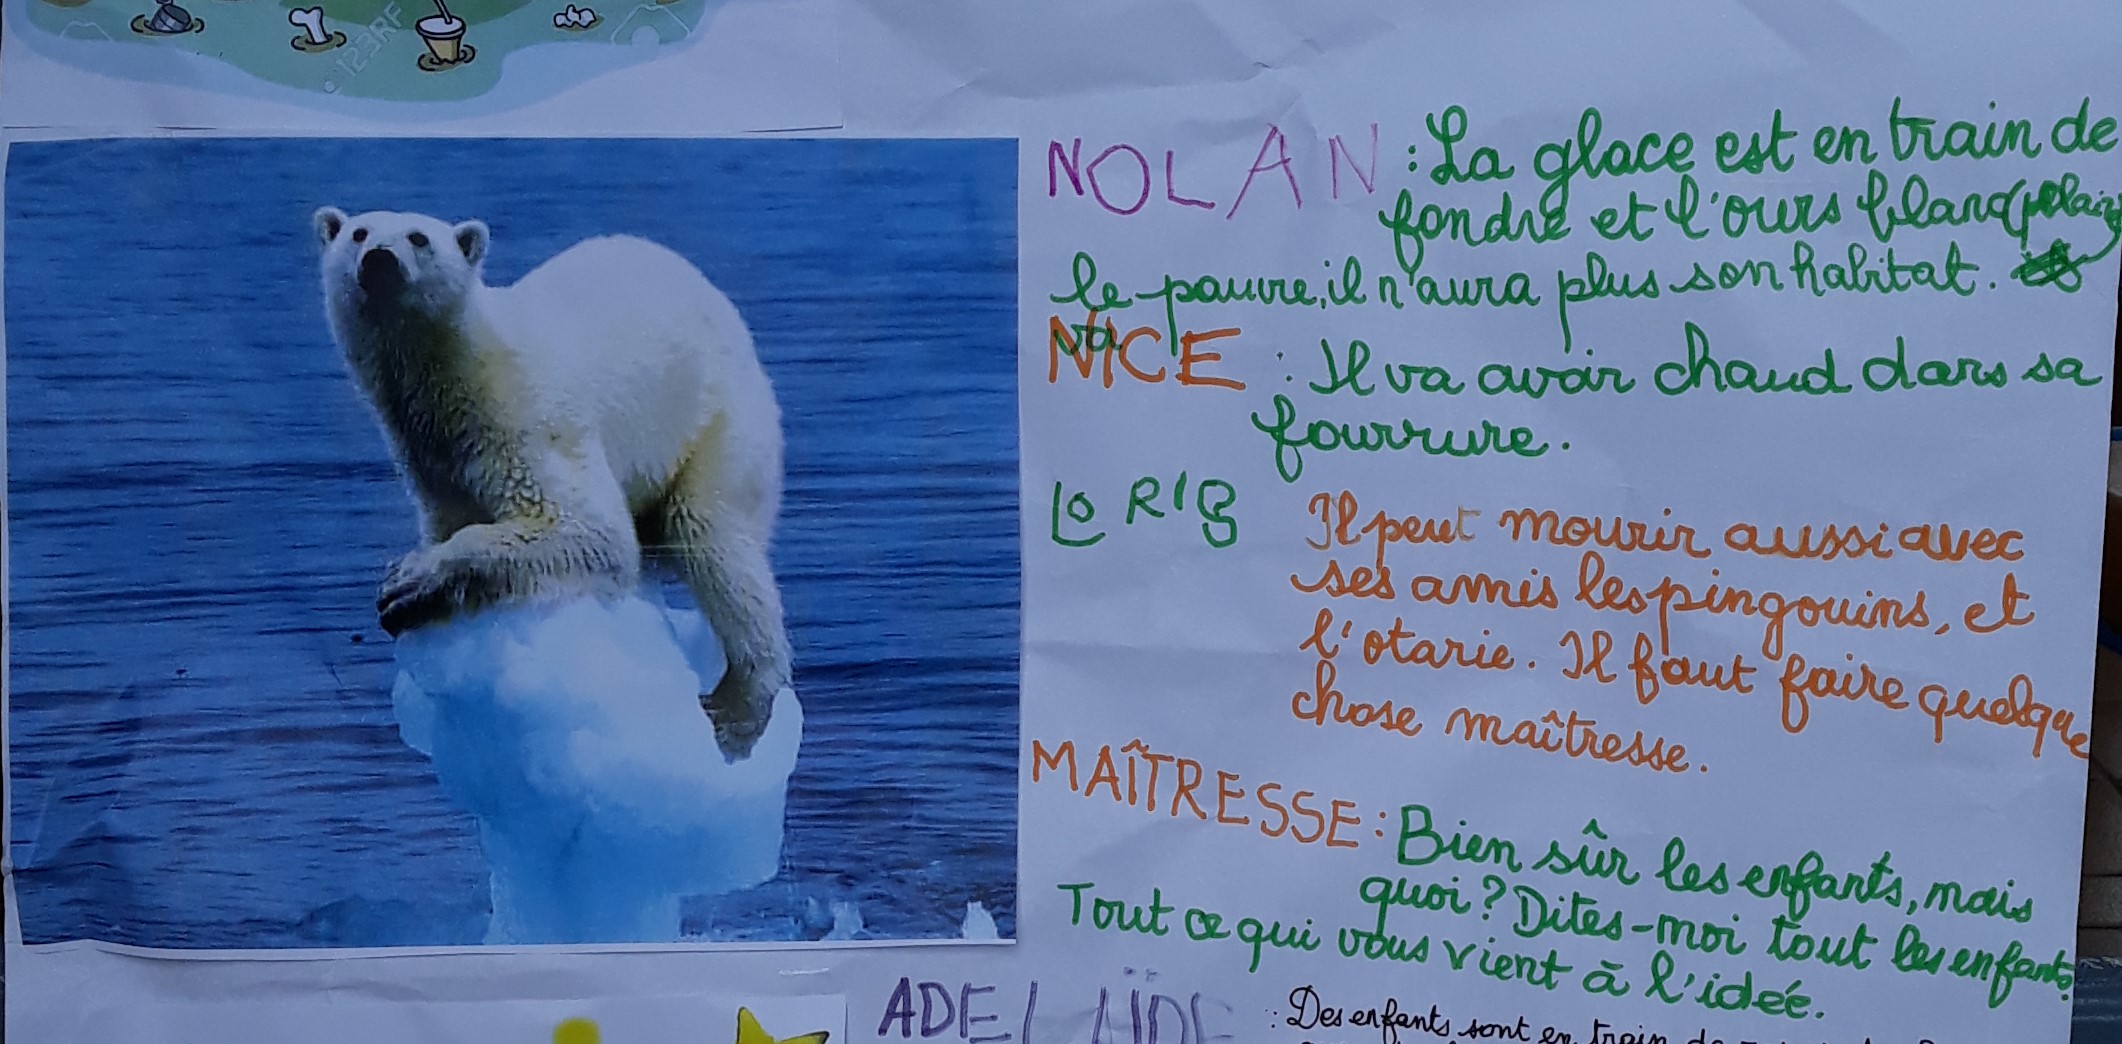 ©123RF
NOLAN : La glace est en train de
fondre et l'ours blanc (polaire)
le pauvre, il n'aura plus son habitat.
va
NICE : Il va avoir chaud dans sa
fourrure.
LORIS Il peut mourir aussi avec
ses amis les pingouins, et
l'otarie. Il faut faire quelque
chose maîtresse.
MAÎTRESSE : Bien sûr les enfants, mais
quoi ? Dites-moi tout les enfants.
Tout ce qui vous vient à l'idée.
ADELAÏDE : Des enfants sont en train de